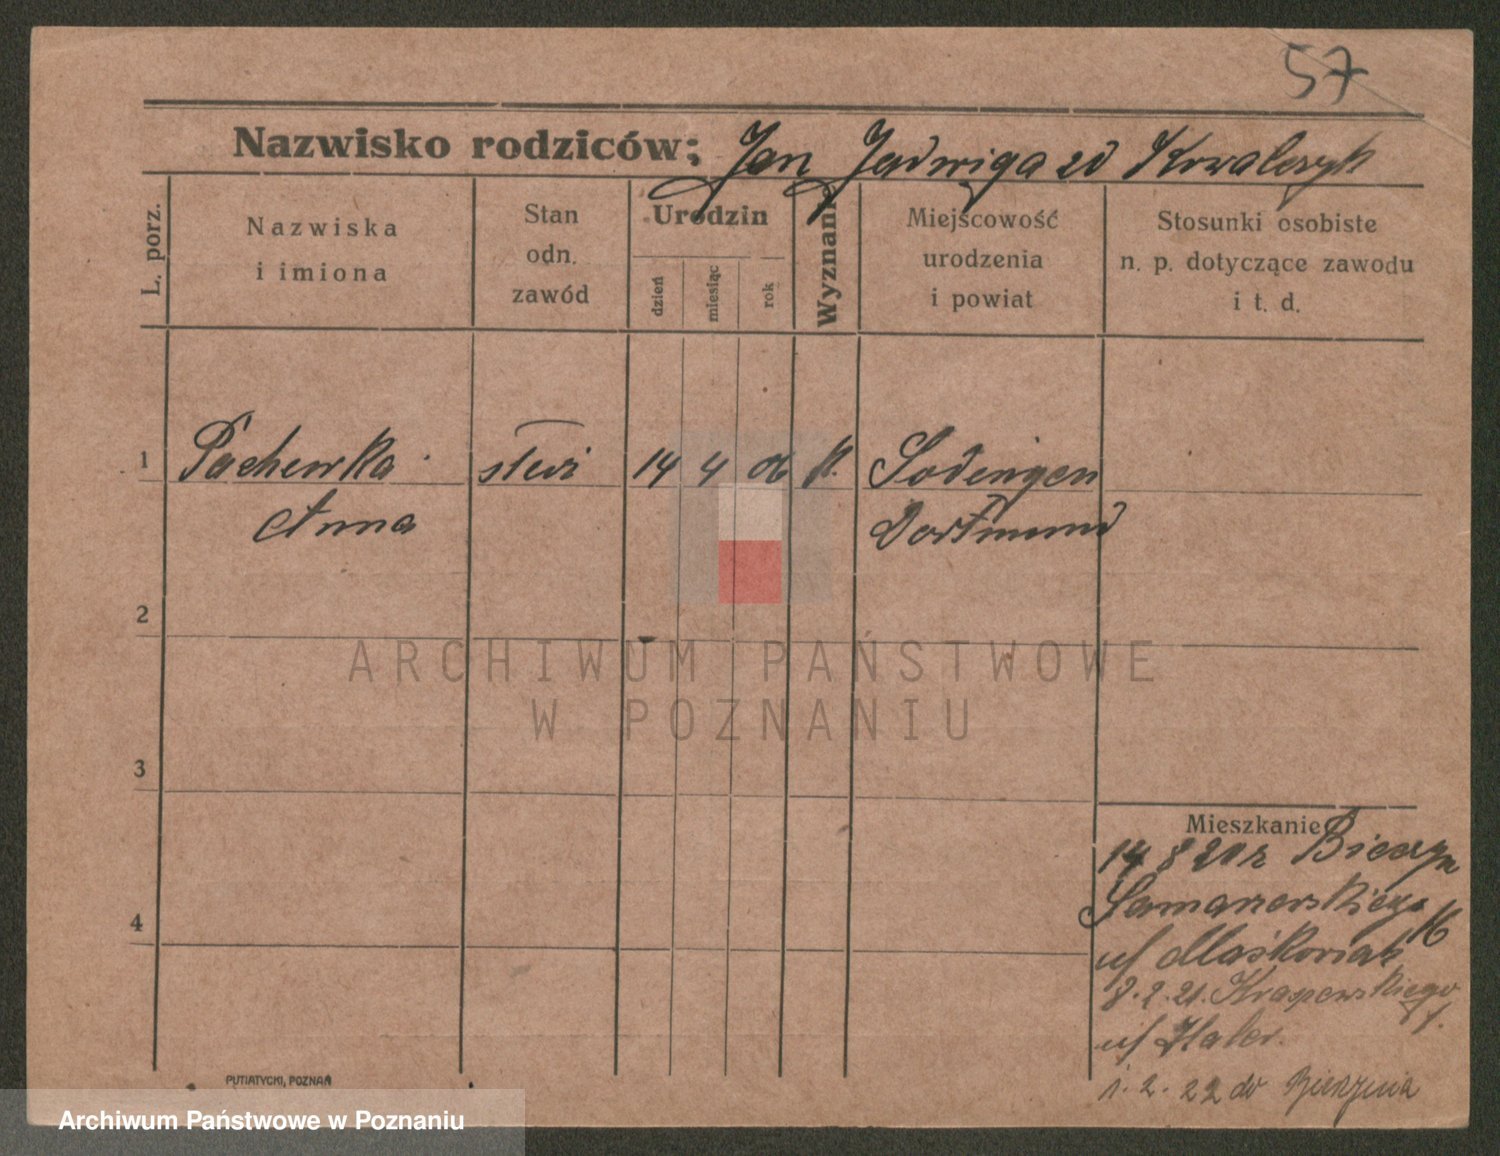 57
Nazwisko rodziców; Jan Jadwiga zd Kowalczyk
L. porz.
Nazwiska
i imiona
Stan
odn.
zawód
Urodzin
dzień
miesiąc
rok
Wyznanie
Miejscowość
urodzenia
i powiat
Stosunki osobiste
n. p. dotyczące zawodu
i t. d.
1 Pachewka 14 4 06 k. Sodingen
Anna Dortmund
2
ARCHIWUM PAŃSTWOWE
W POZNANIU
3
Mieszkanie
14 8 20 z
4
Samarzewskiego 16
u/ Maśkowiak
8.2.21. Kraszewskiego
u/ Haler.
1. 2. 22 do
PUTIATYCKI, POZNAŃ
Archiwum Państwowe w Poznaniu